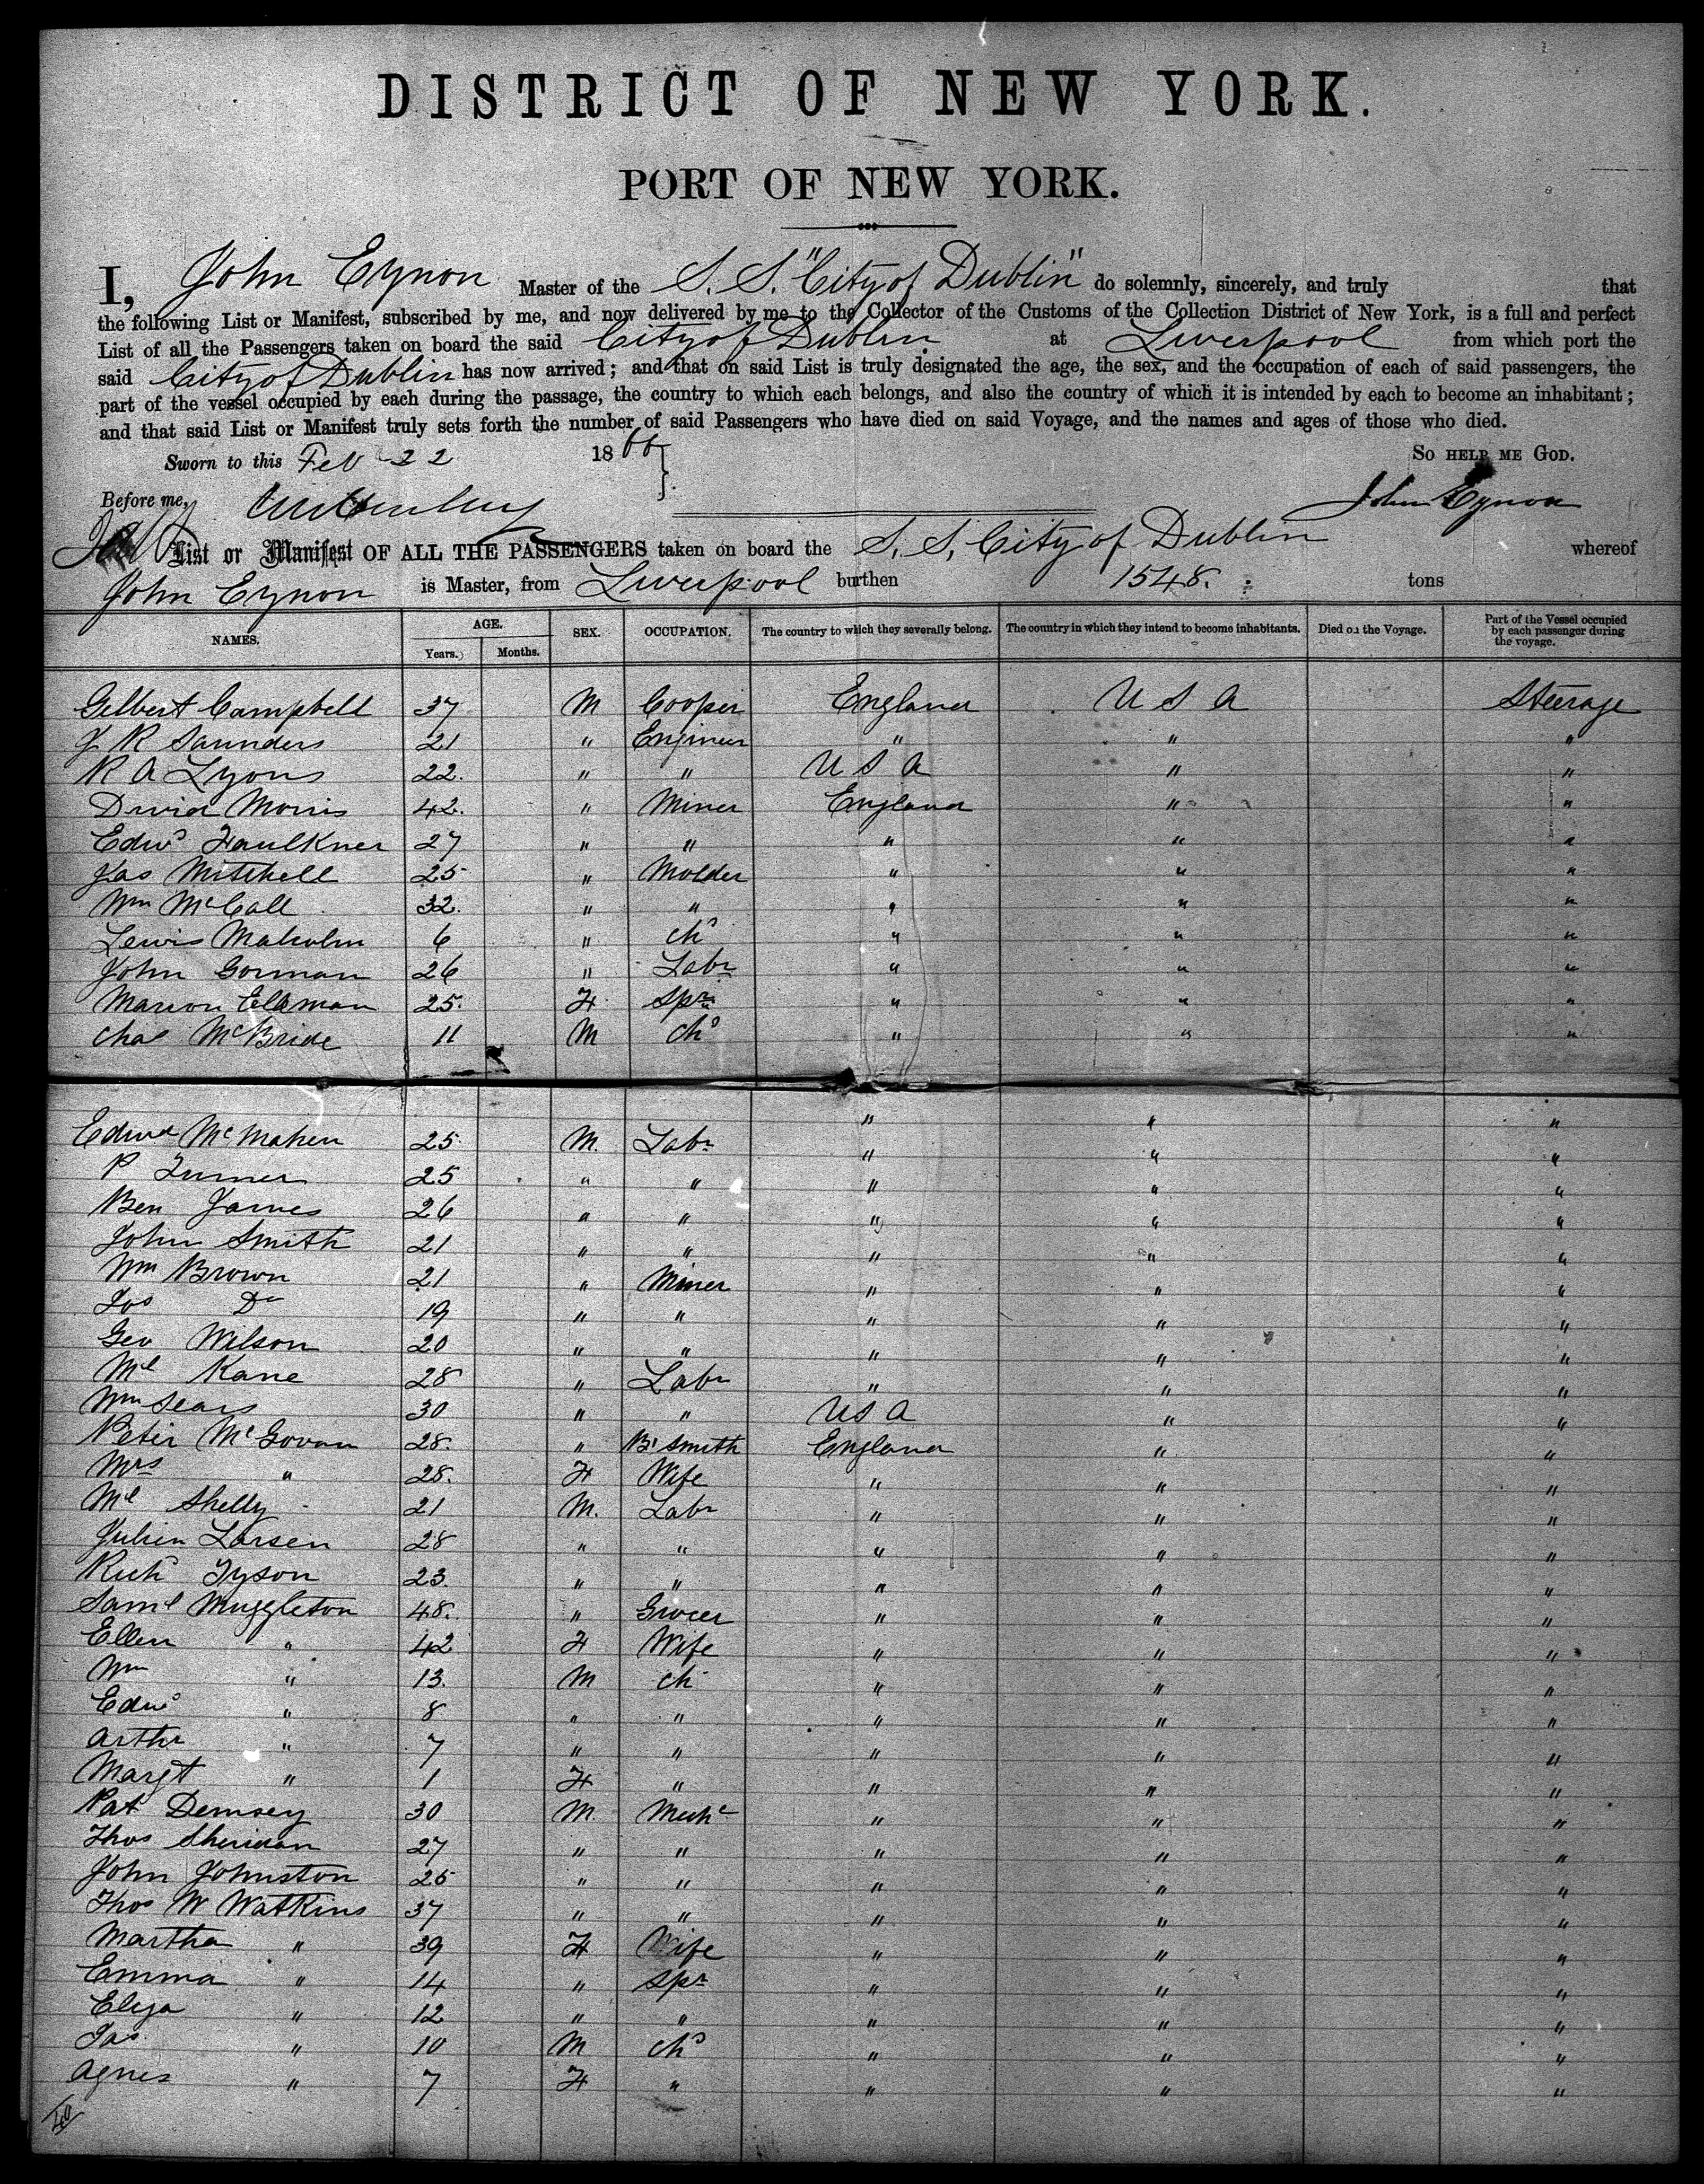 DISTRICT OF NEW YORK.
PORT OF NEW YORK.
I, John Eynon Master of the S. S. "City of Dublin" do solemnly, sincerely, and truly that
the following List or Manifest, subscribed by me, and now delivered by me to the Collector of the Customs of the Collection District of New York, is a full and perfect
List of all the Passengers taken on board the said City of Dublin at Liverpool from which port the
said City of Dublin has now arrived; and that on said List is truly designated the age, the sex, and the occupation of each of said passengers, the
part of the vessel occupied by each during the passage, the country to which each belongs, and also the country of which it is intended by each to become an inhabitant;
and that said List or Manifest truly sets forth the number of said Passengers who have died on said Voyage, and the names and ages of those who died.
Sworn to this Feb 22 1866 So help me God.
Before me, John Eynon
List or Manifest OF ALL THE PASSENGERS taken on board the S. S. City of Dublin whereof
John Eynon is Master, from Liverpool burthen 1548. tons
NAMES. AGE. Years. Months. SEX. OCCUPATION. The country to which they severally belong. The country in which they intend to become inhabitants. Died on the Voyage. Part of the Vessel occupied by each passenger during the voyage.
Gilbert Campbell 37 M Cooper England U S A Steerage
J R Saunders 21 " Engineer " " "
R A Lyons 22. " " U S A " "
David Morris 42. " Miner England " "
Edwd Faulkner 27 " " " " "
Jas Mitchell 25 " Molder " " "
Wm McCall 32. " " " " "
Lewis Malcolm 6 " chd " " "
John Gorman 26 " Labr " " "
Marion Elleman 25. F. Spr " " "
Chas McBride 11 M chd " " "
Edwd McMahen 25. M. Labr " " "
P Turner 25 " " " " "
Ben James 26 " " " " "
John Smith 21 " " " " "
Wm Brown 21 " Miner " " "
Jos Do 19 " " " " "
Geo Wilson 20 " " " " "
Ml Kane 28 " Labr " " "
Wm Sears 30 " " U S A " "
Peter McGovan 28. " Bl Smith England " "
Mrs " 28. F Wife " " "
Ml Shelly 21 M. Labr " " "
Julien Larsen 28 " " " " "
Richd Tyson 23. " " " " "
Saml Muggleton 48. " Grocer " " "
Ellen " 42 F Wife " " "
Wm " 13. M ch " " "
Edwd " 8 " " " " "
Arthr " 7 " " " " "
Margt " 1 F " " " "
Pat Demsey 30 M Mechc " " "
Thos Sheridan 27 " " " " "
John Johnston 25 " " " " "
Thos W Watkins 37 " " " " "
Martha " 39 F Wife " " "
Emma " 14 " Spr " " "
Eliza " 12 " " " " "
Jas " 10 M chd " " "
Agnes " 7 F " " " "
40